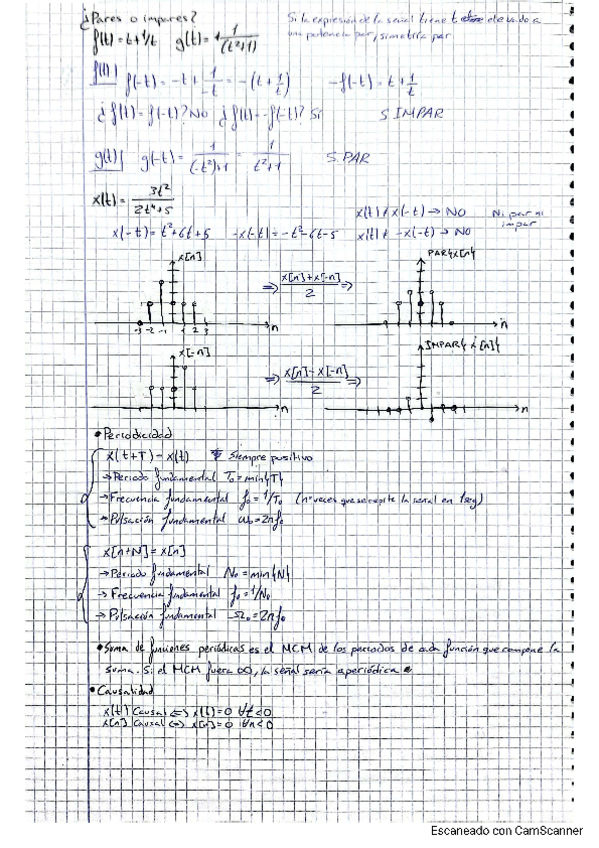 ¿Pares o impares?
f(t)=t+1/t   g(t)= 1/(t²+1)
Si la expresión de la señal tiene t elevado a
una potencia par, simetría par
f(t)| f(-t)=-t+1/-t=-(t+1/t)   -f(-t)=t+1/t
¿f(t)=f(-t)? No ¿f(t)=-f(-t)? Sí   S IMPAR
g(t)| g(-t)=1/(-t²)+1=1/t²+1   S. PAR
x(t)=3t²/2t⁴+5
x(t)≠x(-t)→NO   Ni par ni
impar
x(-t)=t²+6t+5   -x(-t)=-t²-6t-5   x(t)≠-x(-t)→NO
x[n]   PAR{x[n]}
⇒ x[n]+x[-n]/2 ⇒
-3 -2 -1 1 2 3   n   n
x[-n]   IMPAR{x[n]}
⇒ x[n]-x[-n]/2 ⇒
n   n
• Periodicidad
x(t+T)-x(t)   Siempre positivo
→Periodo fundamental T₀=min{T}
→Frecuencia fundamental f₀=1/T₀ (nº veces que se repite la señal en 1seg)
→Pulsación fundamental ω₀=2πf₀
x[n+N]=x[n]
→Periodo fundamental N₀=min{N}
→Frecuencia fundamental f₀=1/N₀
→Pulsación fundamental Ω₀=2πf₀
•Suma de funciones periódicas es el MCM de los periodos de cada función que compone la
suma. Si el MCM fuera ∞, la señal sería aperiódica
•Causalidad
x(t) Causal ⇔ x(t)=0 ∀t<0
x[n] Causal ⇔ x[n]=0 ∀n<0
Escaneado con CamScanner